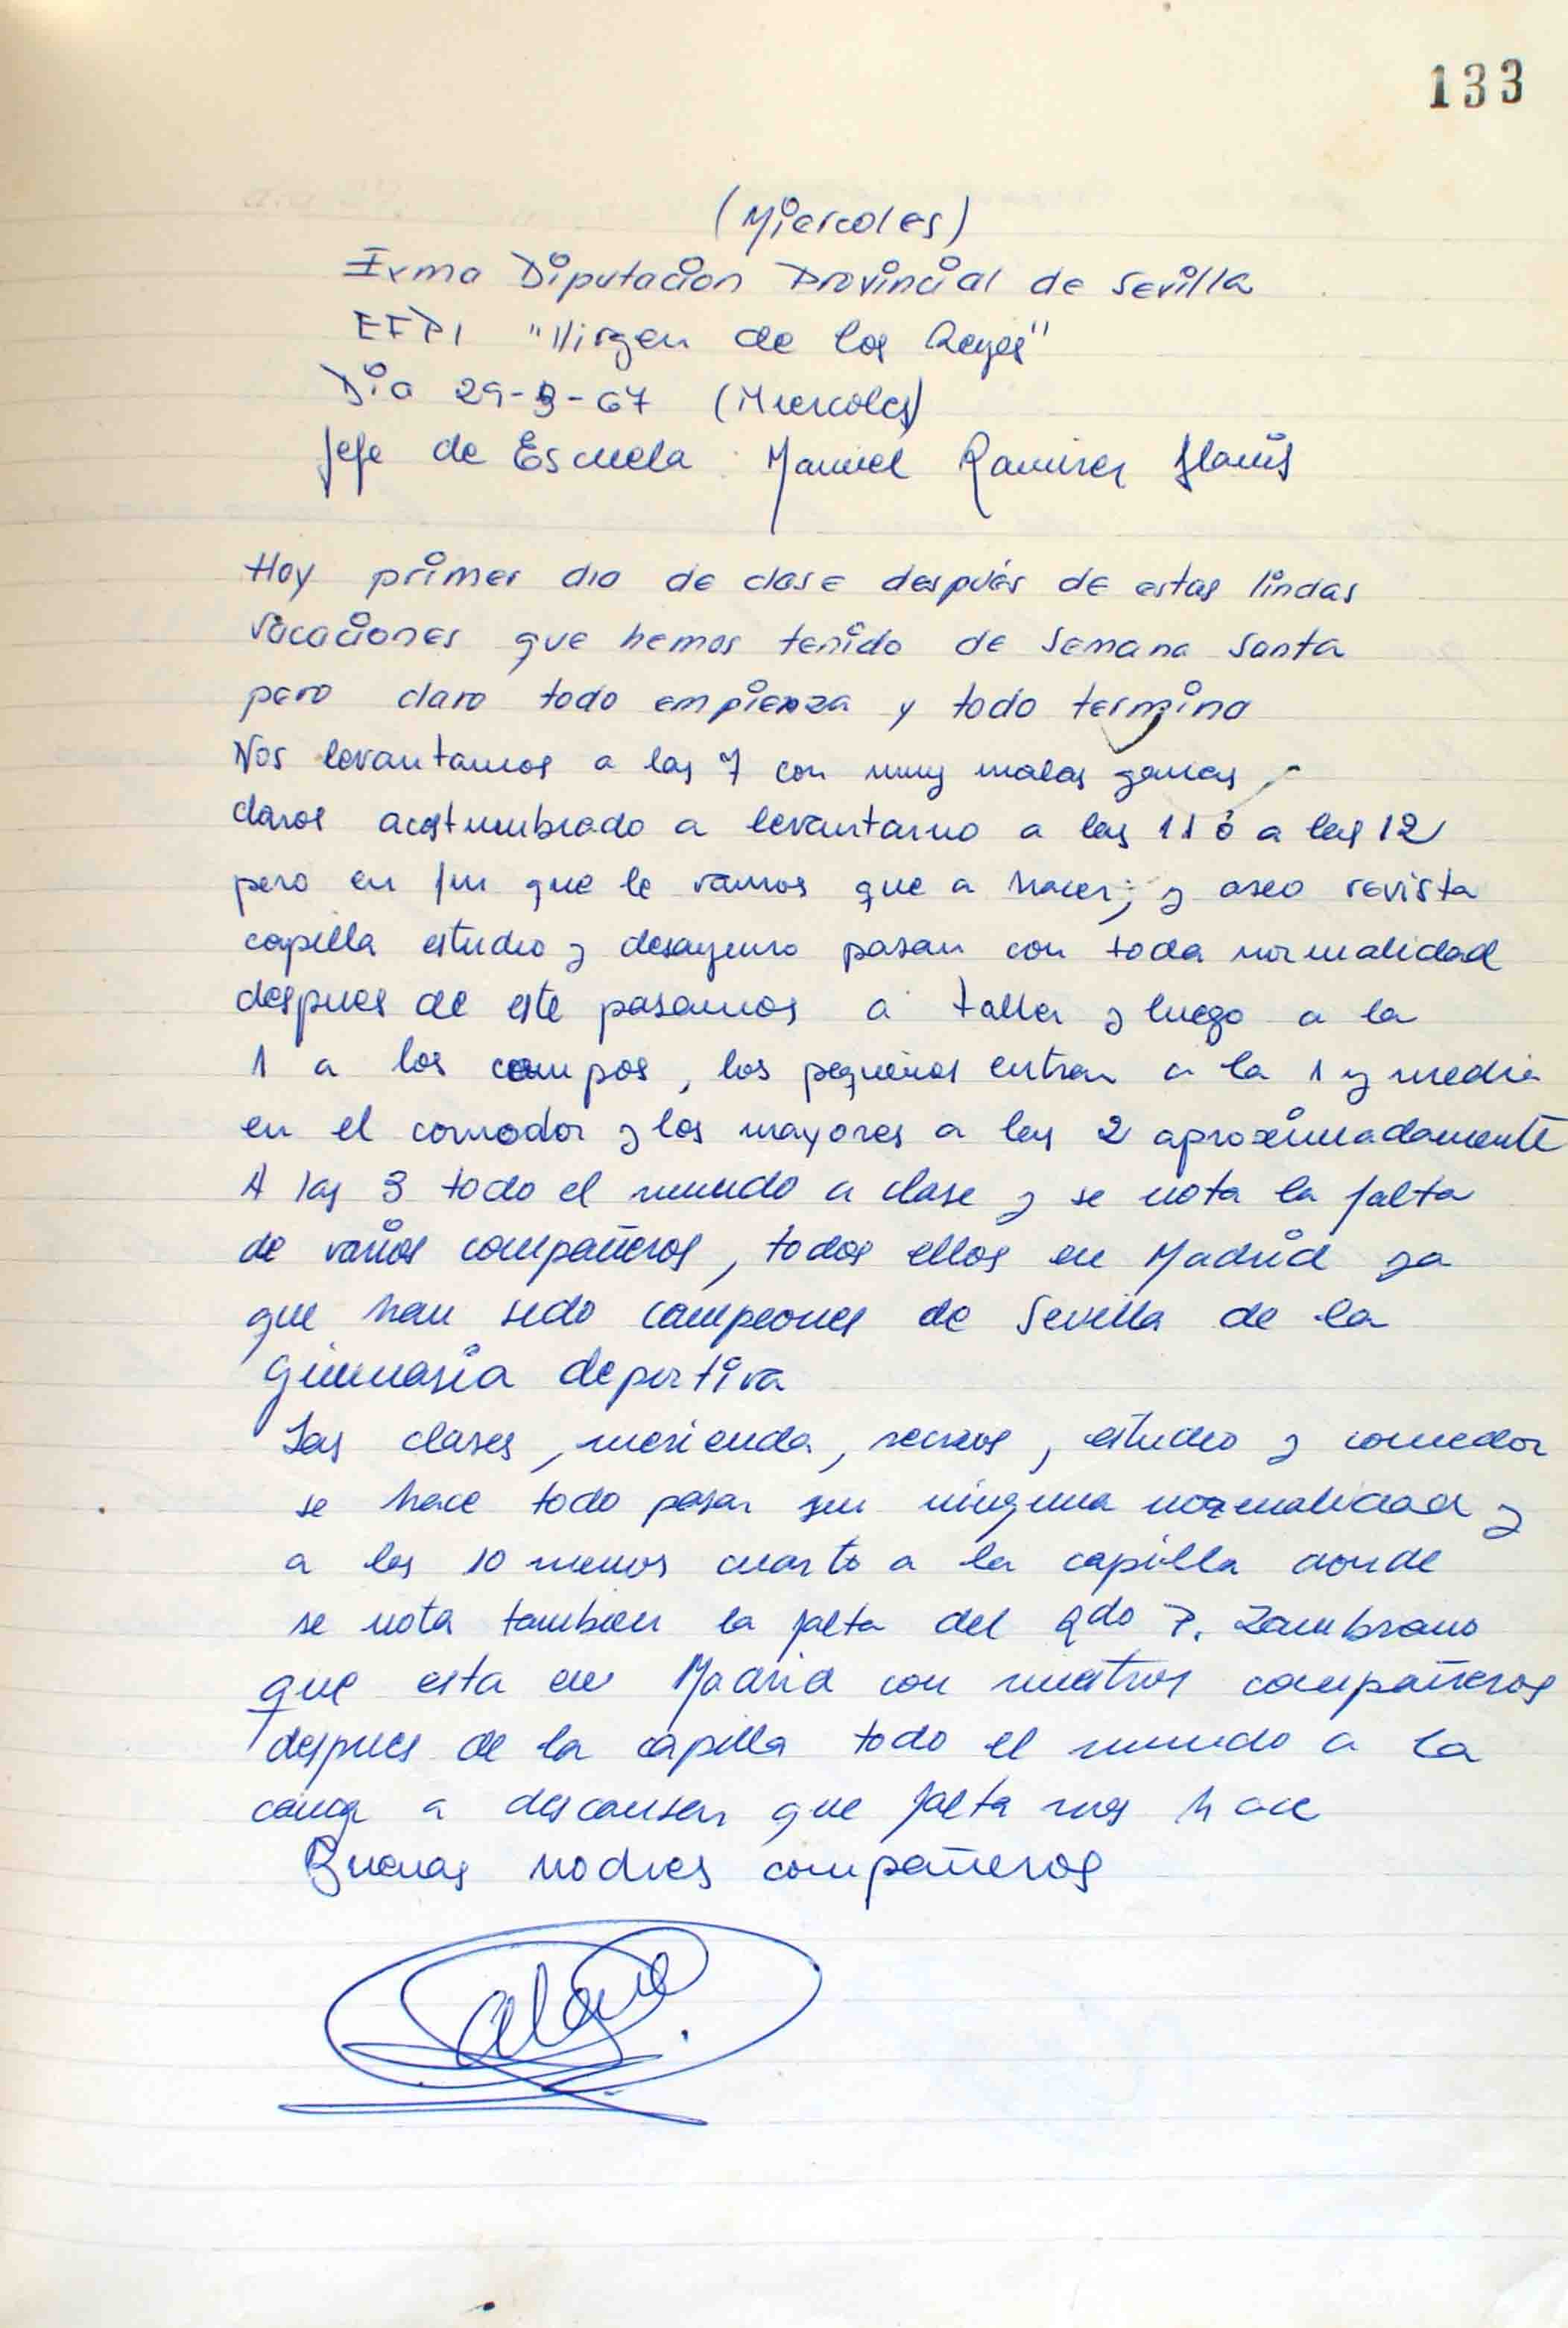 133
(Miercoles)
Exma Diputacion Provincial de Sevilla
EFPI "Virgen de los Reyes"
Dia 29-3-67 (Miercoles)
Jefe de Escuela : Manuel Ramirez
Hoy primer dia de clase después de estas lindas
vacaciones que hemos tenido de Semana Santa
pero claro todo empienza y todo termina
Nos levantamos a las 7 con muy malas ganas
claros acostumbrado a levantarno a las 11 ó a las 12
pero en fin que le vamos que a hacer; y aseo revista
capilla estudio y desayuno pasan con toda normalidad
despues de este pasamos a taller y luego a la
1 a los campos, los pequeños entran a la 1 y media
en el comodor y los mayores a las 2 aproximadamente
A las 3 todo el mundo a clase y se nota la falta
de varios compañeros, todos ellos en Madrid ya
que han sido campeones de Sevilla de la
gimnasia deportiva
Las clases, merienda, recreos, estudio y comedor
se hace todo pasar sin ninguna normalidad y
a las 10 menos cuarto a la capilla donde
se nota tambien la falta del Rdo P. Zambrano
que esta en Madrid con nuestros compañeros
despues de la capilla todo el mundo a la
cama a descansar que falta nos hace
Buenas noches compañeros